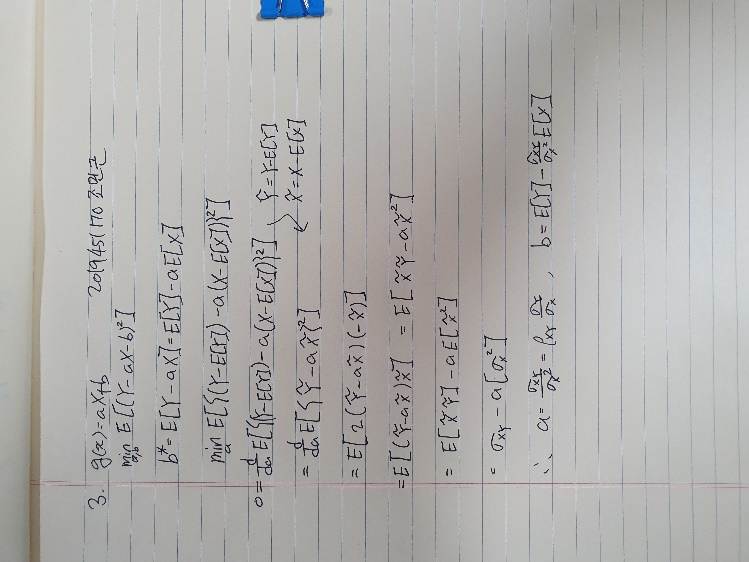 3. g(x)=aX+b 201945170 조민근
min_{a,b} E[(Y-aX-b)²]
b*=E[Y-aX]=E[Y]-aE[X]
min_a E[{(Y-E[Y])-a(X-E[X])}²]
0=d/da E[{(Y-E[Y])-a(X-E[X])}²] Ỹ=Y-E[Y]
X̃=X-E[X]
=d/da E[{Ỹ-aX̃}²]
=E[2(Ỹ-aX̃)(-X̃)]
=E[(Ỹ-aX̃)X̃] =E[X̃Ỹ-aX̃²]
=E[X̃Ỹ]-aE[X̃²]
=σ_{XY}-a[σ_X²]
∴ a=σ_{XY}/σ_X²=ρ_{XY} σ_Y/σ_X, b=E[Y]-σ_{XY}/σ_X² E[X]